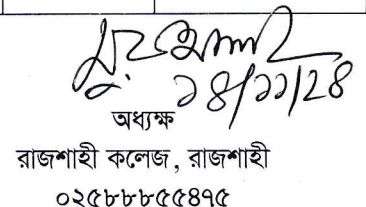 ১৪/১১/২৪
অধ্যক্ষ
রাজশাহী কলেজ, রাজশাহী
০২৫৮৮৮৫৫৪৭৫